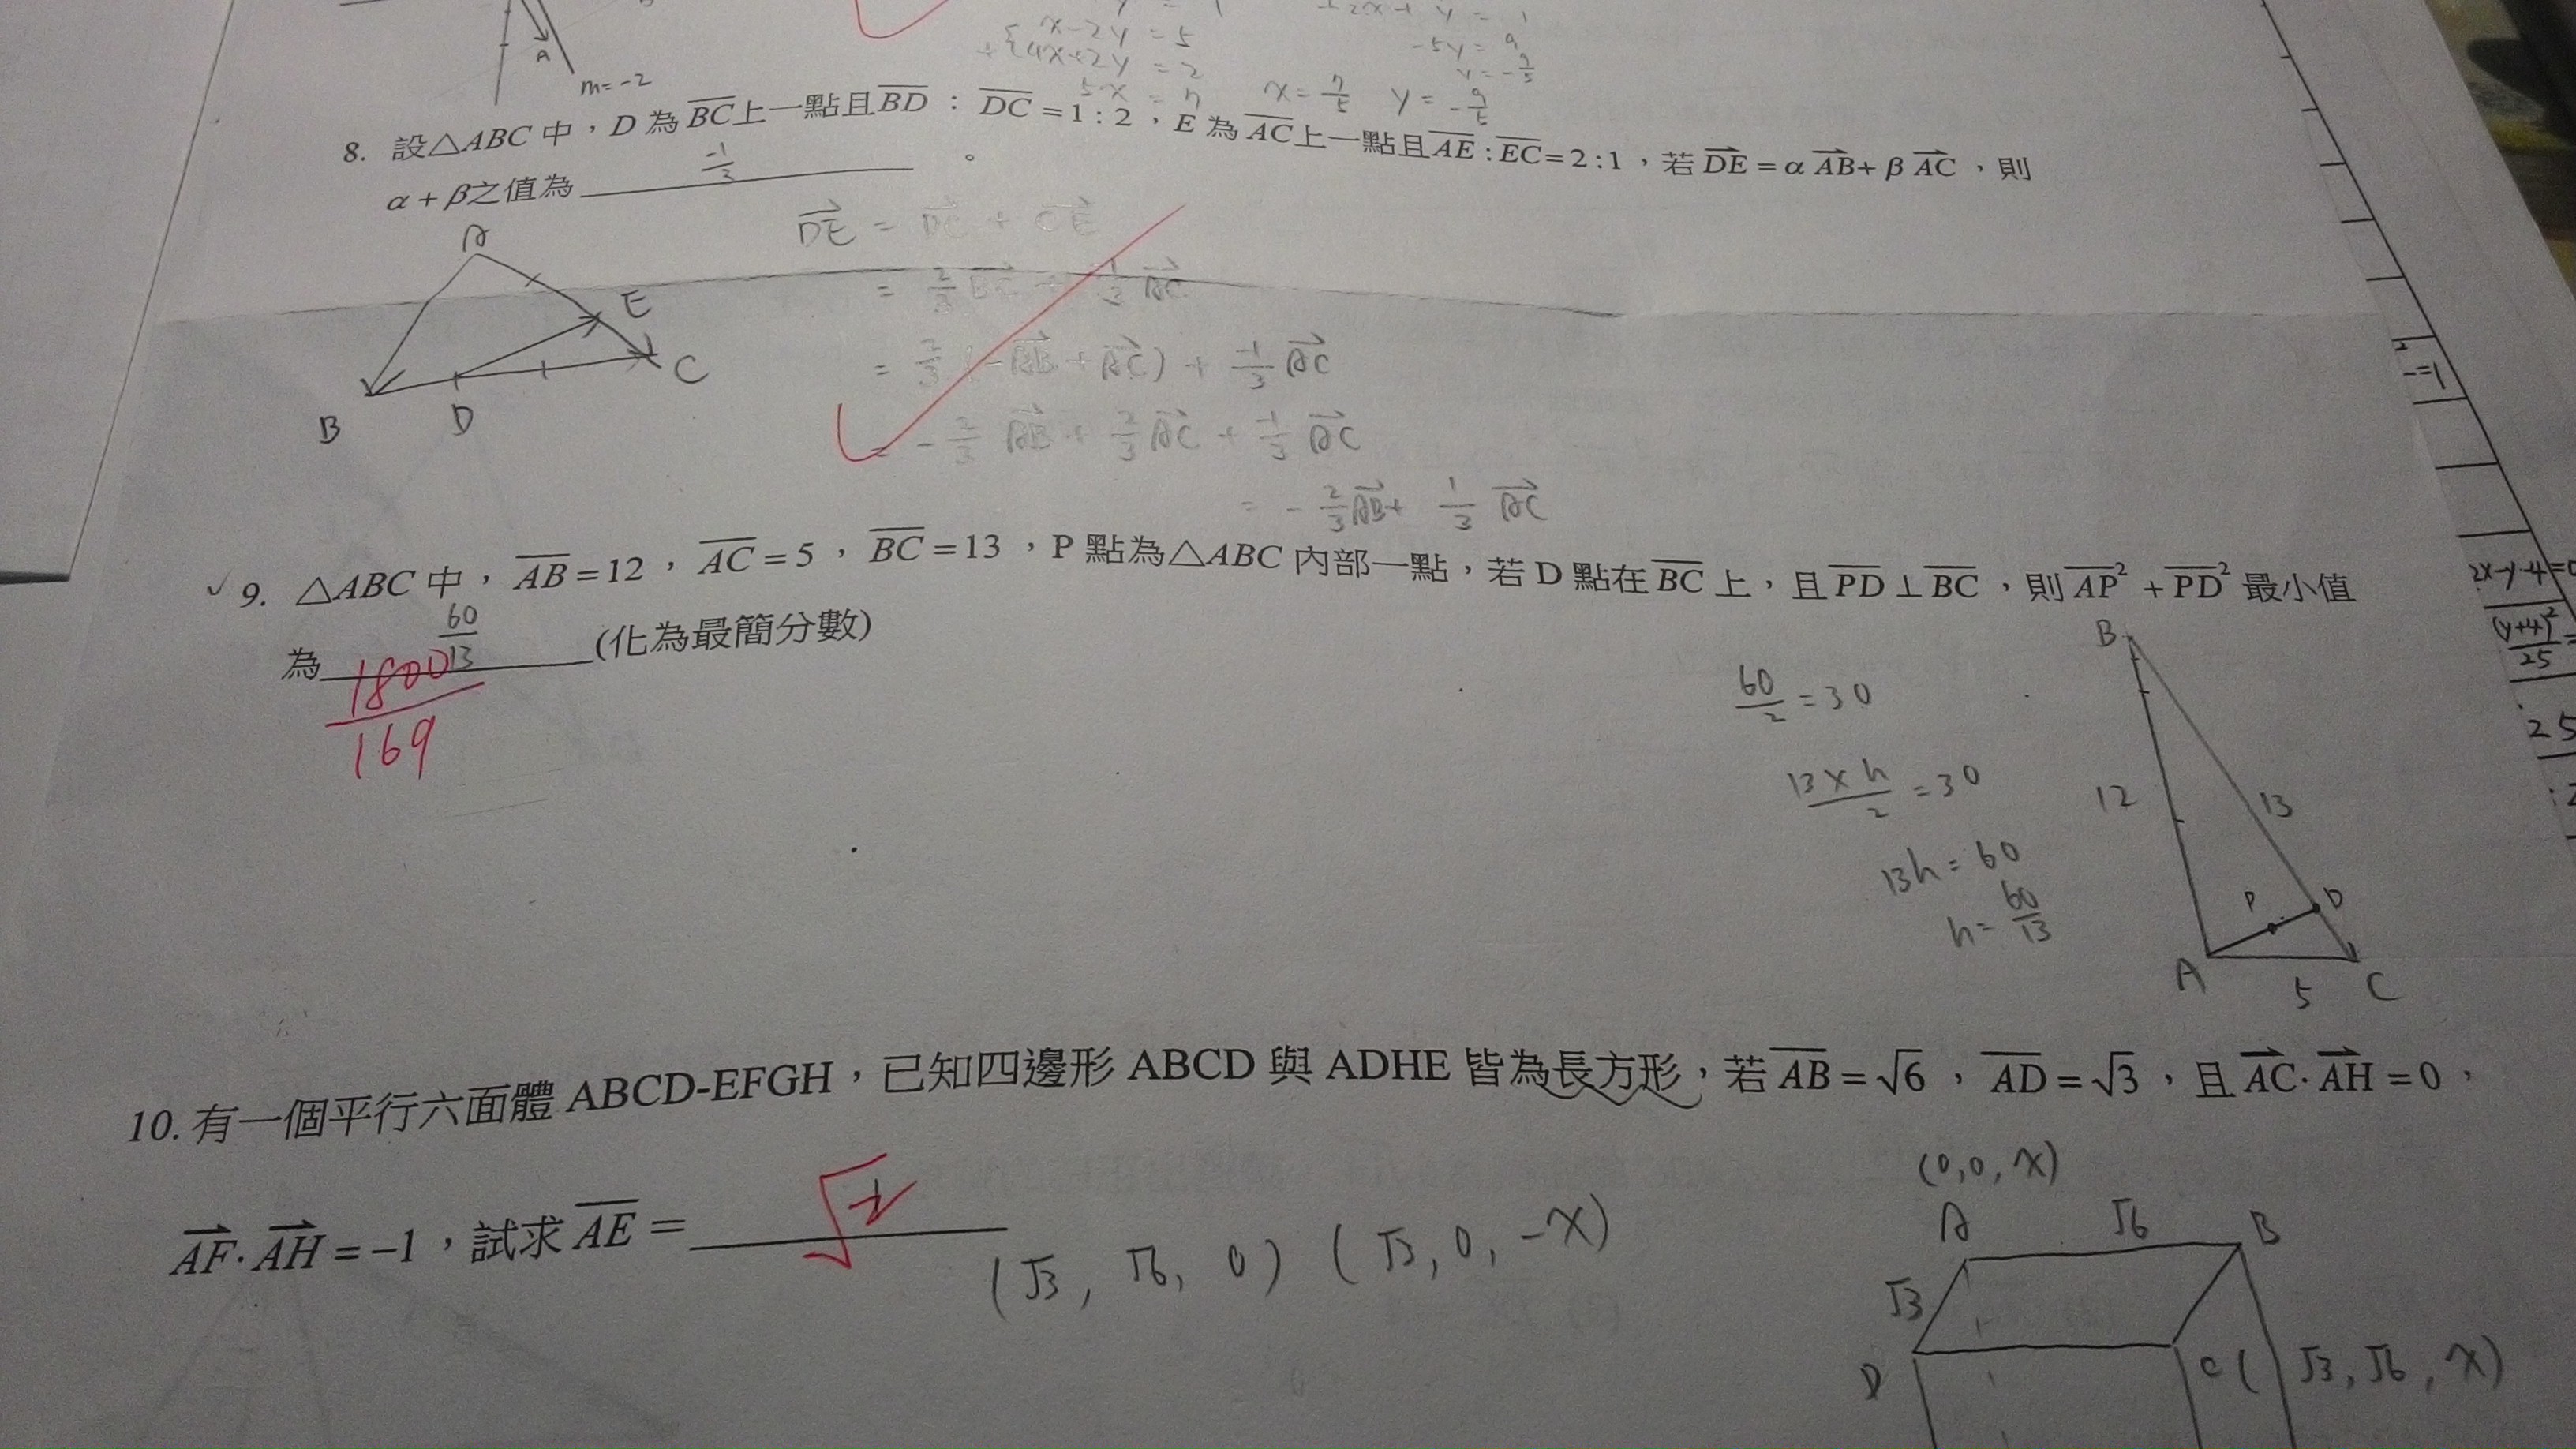 A
m=-2
x-2y = 5
+{4x+2y = 2
5x = 7
-5y = 9
y = -9/5
x = 7/5 y = -9/5
8. 設△ABC 中，D 為 BC上一點且BD : DC = 1 : 2，E 為 AC上一點且AE : EC = 2 : 1，若 DE = α AB + β AC，則
α + β之值為 -1/3 。
A
B
C
D
E
DE = DC + CE
= 2/3 BC + -1/3 AC
= 2/3 (-AB + AC) + -1/3 AC
= -2/3 AB + 2/3 AC + -1/3 AC
= -2/3 AB + 1/3 AC
9. △ABC 中，AB = 12，AC = 5，BC = 13，P 點為△ABC 內部一點，若 D 點在 BC 上，且 PD ⊥ BC，則 AP² + PD² 最小值
為 60/13 (化為最簡分數)
1800/169
60/2 = 30
13 x h/2 = 30
13h = 60
h = 60/13
B
12
13
P
D
A
5
C
2x-y-4=0
(y+4)²/25
25
10. 有一個平行六面體 ABCD-EFGH，已知四邊形 ABCD 與 ADHE 皆為長方形，若 AB = √6，AD = √3，且 AC · AH = 0，
AF · AH = -1，試求 AE = 
(√3, √6, 0) (√3, 0, -x)
(0, 0, x)
A √6 B
√3
D C (√3, √6, x)